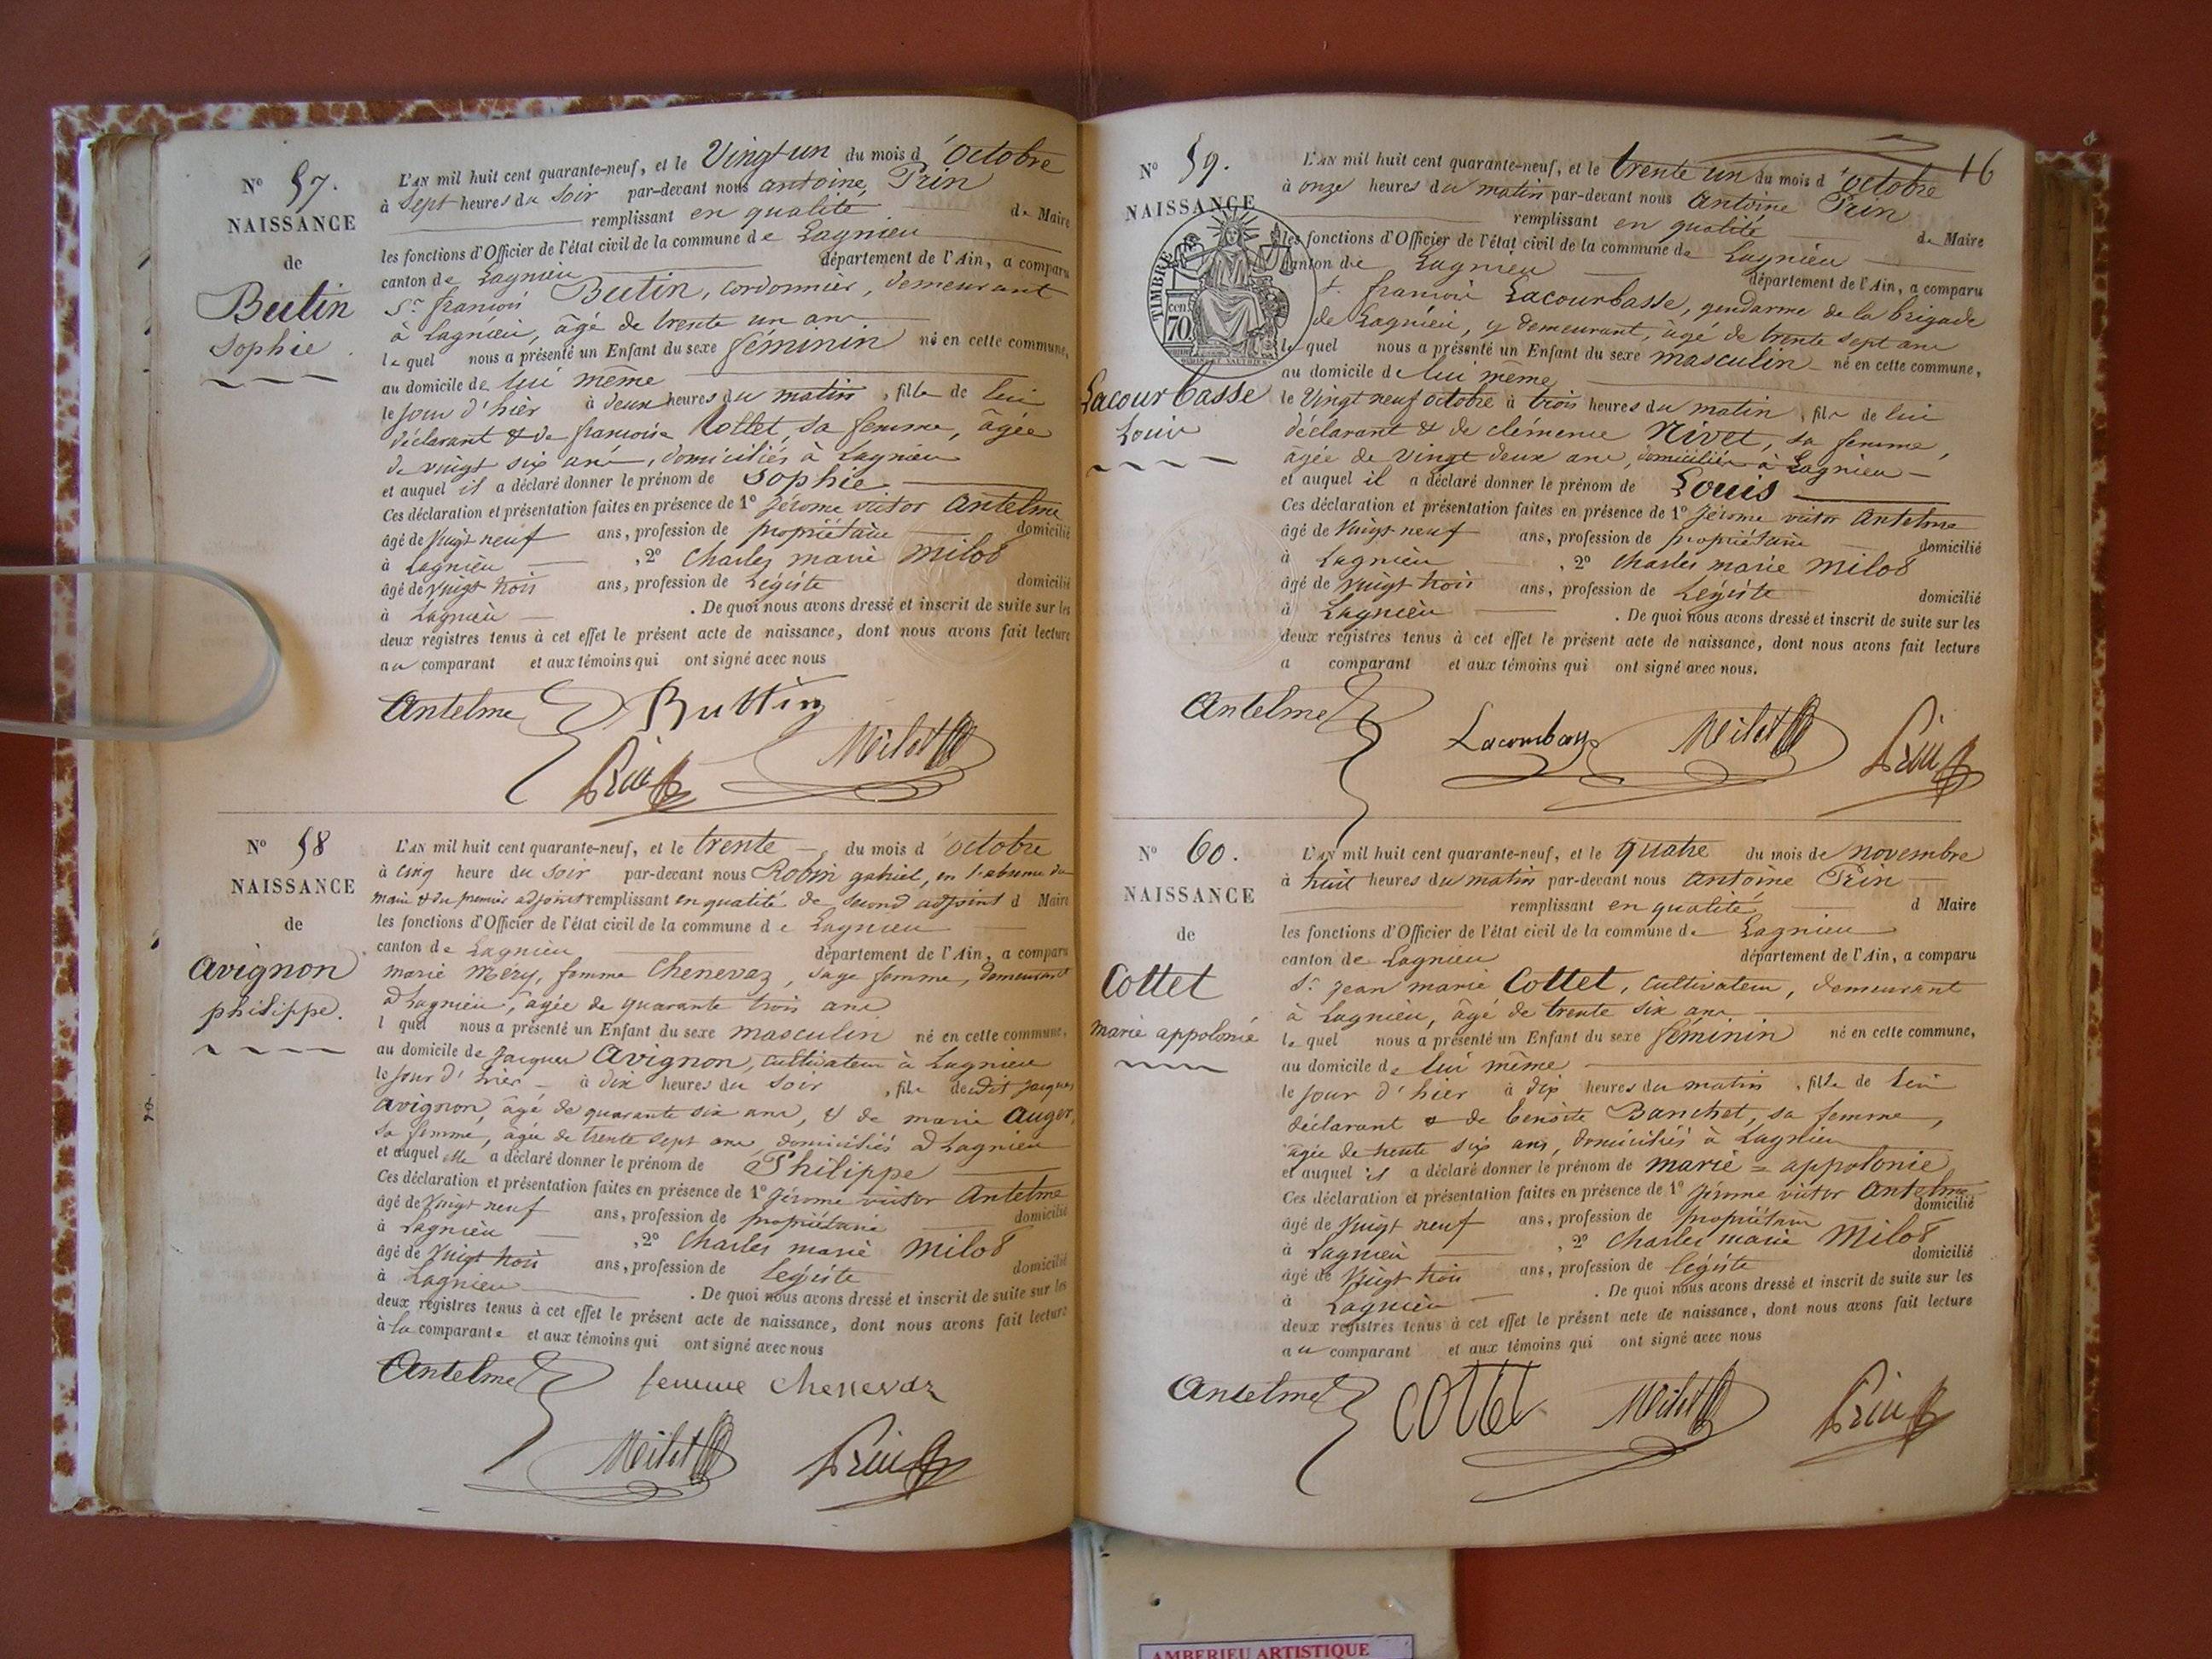 N° 57.
NAISSANCE
de
Butin
Sophie
L'AN mil huit cent quarante-neuf, et le Vingt un du mois d'Octobre
à Sept heures du Soir par-devant nous antoine Prin
remplissant en qualité de Maire
les fonctions d'Officier de l'état civil de la commune de Lagnieu
canton de Lagnieu département de l'Ain, a comparu
Sr françois Butin, cordonnier, demeurant
à Lagnieu, âgé de trente un ans
lequel nous a présenté un Enfant du sexe féminin né en cette commune,
au domicile de lui même
le jour d'hier à deux heures du matin, fille de lui
déclarant & de françoise Collet, sa femme, âgée
de vingt six ans, domiciliés à Lagnieu
et auquel il a déclaré donner le prénom de Sophie
Ces déclaration et présentation faites en présence de 1° Jérome victor Antelme
âgé de Vingt neuf ans, profession de propriétaire domicilié
à Lagnieu , 2° Charles marie Milot
âgé de vingt trois ans, profession de Légiste domicilié
à Lagnieu . De quoi nous avons dressé et inscrit de suite sur les
deux registres tenus à cet effet le présent acte de naissance, dont nous avons fait lecture
au comparant et aux témoins qui ont signé avec nous
Antelme Buttin
Prin Milot
N° 58
NAISSANCE
de
Avignon
philippe.
L'AN mil huit cent quarante-neuf, et le trente du mois d'octobre
à cinq heure du Soir par-devant nous Robin gabriel, en l'absence du
maire & du premier adjoint remplissant en qualité de Second adjoint d Maire
les fonctions d'Officier de l'état civil de la commune de Lagnieu
canton de Lagnieu département de l'Ain, a comparu
marie Mery, femme Chenevaz, Sage femme, demeurant
à Lagnieu, âgée de quarante trois ans
l quel nous a présenté un Enfant du sexe masculin né en cette commune,
au domicile de Jacques Avignon, cultivateur à Lagnieu
le jour d'hier à dix heures du Soir , fils de dit Jacques
Avignon, âgé de quarante six ans, & de marie Auger,
sa femme, âgée de trente sept ans, domiciliés à Lagnieu
et auquel elle a déclaré donner le prénom de Philippe
Ces déclaration et présentation faites en présence de 1° Jérome victor Antelme
âgé de Vingt neuf ans, profession de propriétaire domicilié
à Lagnieu , 2° Charles marie Milot
âgé de Vingt trois ans, profession de légiste domicilié
à Lagnieu . De quoi nous avons dressé et inscrit de suite sur les
deux registres tenus à cet effet le présent acte de naissance, dont nous avons fait lecture
à la comparante et aux témoins qui ont signé avec nous
Antelme femme chenevaz
Milot Prin
16
N° 59.
NAISSANCE
TIMBRE
70 cen
Lacourbasse
Louis
L'AN mil huit cent quarante-neuf, et le trente un du mois d'octobre
à onze heures du matin par-devant nous Antoine Prin
remplissant en qualité de Maire
les fonctions d'Officier de l'état civil de la commune de Lagnieu
canton de Lagnieu département de l'Ain, a comparu
Sr françois Lacourbasse, gendarme de la brigade
de Lagnieu, y demeurant, âgé de trente sept ans
lequel nous a présenté un Enfant du sexe masculin né en cette commune,
au domicile de lui meme
le Vingt neuf octobre à trois heures du matin, fils de lui
déclarant & de clémence Nivet, sa femme,
âgée de vingt deux ans, domiciliés à Lagnieu
et auquel il a déclaré donner le prénom de Louis
Ces déclaration et présentation faites en présence de 1° Jérome victor Antelme
âgé de Vingt neuf ans, profession de propriétaire domicilié
à Lagnieu , 2° Charles marie Milot
âgé de vingt trois ans, profession de Légiste domicilié
à Lagnieu . De quoi nous avons dressé et inscrit de suite sur les
deux registres tenus à cet effet le présent acte de naissance, dont nous avons fait lecture
a comparant et aux témoins qui ont signé avec nous.
Antelme Milot Prin
N° 60.
NAISSANCE
de
Cottet
marie appolonie
L'AN mil huit cent quarante-neuf, et le quatre du mois de novembre
à huit heures du matin par-devant nous Antoine Prin
remplissant en qualité d Maire
les fonctions d'Officier de l'état civil de la commune de Lagnieu
canton de Lagnieu département de l'Ain, a comparu
Sr jean marie Cottet, cultivateur, demeurant
à Lagnieu, âgé de trente six ans
lequel nous a présenté un Enfant du sexe féminin né en cette commune,
au domicile de lui même
le jour d'hier à dix heures du matin, fille de lui
déclarant & de benoite Banchet, sa femme,
âgée de trente six ans, domiciliés à Lagnieu
et auquel il a déclaré donner le prénom de marie = appolonie
Ces déclaration et présentation faites en présence de 1° Jérome victor Antelme
âgé de Vingt neuf ans, profession de propriétaire domicilié
à Lagnieu , 2° Charles marie Milot
âgé de Vingt trois ans, profession de légiste domicilié
à Lagnieu . De quoi nous avons dressé et inscrit de suite sur les
deux registres tenus à cet effet le présent acte de naissance, dont nous avons fait lecture
au comparant et aux témoins qui ont signé avec nous
Antelme Cottet Milot Prin
AMBERIEU ARTISTIQUE